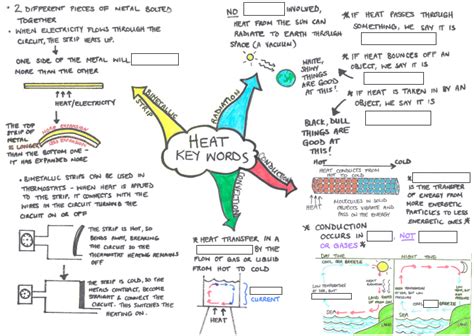 • 2 DIFFERENT PIECES OF METAL BOLTED
TOGETHER
• WHEN ELECTRICITY FLOWS THROUGH THE
CIRCUIT, THE STRIP HEATS UP.
ONE SIDE OF THE METAL WILL
MORE THAN THE OTHER
HEAT/ELECTRICITY
THE TOP
STRIP OF
METAL
IS LONGER
THAN THE BOTTOM ONE -
IT HAS EXPANDED MORE
• BIMETALLIC STRIPS CAN BE USED IN
THERMOSTATS - WHEN HEAT IS APPLIED
TO THE STRIP, IT CONNECTS WITH THE
WIRES IN THE CIRCUIT TURNING THE
CIRCUIT ON OR OFF
THE STRIP IS HOT, SO
BENDS AWAY, BREAKING
THE CIRCUIT SO THE
THERMOSTAT HEATING REMAINS
OFF
THE STRIP IS COLD, SO THE
METALS CONTRACT, BECOME
STRAIGHT & CONNECT THE
CIRCUIT - THIS SWITCHES THE
HEATING ON.
HEAT
KEY WORDS
BIMETALLIC
STRIP
RADIATION
CONDUCTION
CONVECTION
NO INVOLVED,
HEAT FROM THE SUN CAN
RADIATE TO EARTH THROUGH
SPACE (A VACUUM)
WHITE,
SHINY
THINGS
ARE GOOD
AT THIS!
BLACK, DULL
THINGS ARE
GOOD AT
THIS!
* IF HEAT PASSES THROUGH
SOMETHING, WE SAY IT IS
* IF HEAT BOUNCES OFF AN
OBJECT, WE SAY IT IS
* IF HEAT IS TAKEN IN BY AN
OBJECT, WE SAY IT IS
HOT COLD
HEAT CONDUCTS FROM
HOT TO COLD
MOLECULES IN SOLID
OBJECTS VIBRATE AND
PASS ON THE ENERGY
IS THE TRANSFER
OF ENERGY FROM
MORE ENERGETIC
PARTICLES TO LESS
ENERGETIC ONES *
* CONDUCTION
OCCURS IN NOT
OR GASES *
* HEAT TRANSFER IN A
BY THE
FLOW OF GAS OR LIQUID
FROM HOT TO COLD
CURRENT
DAY TIME
COOL SEA BREEZE
SEA
NIGHT TIME
SEA